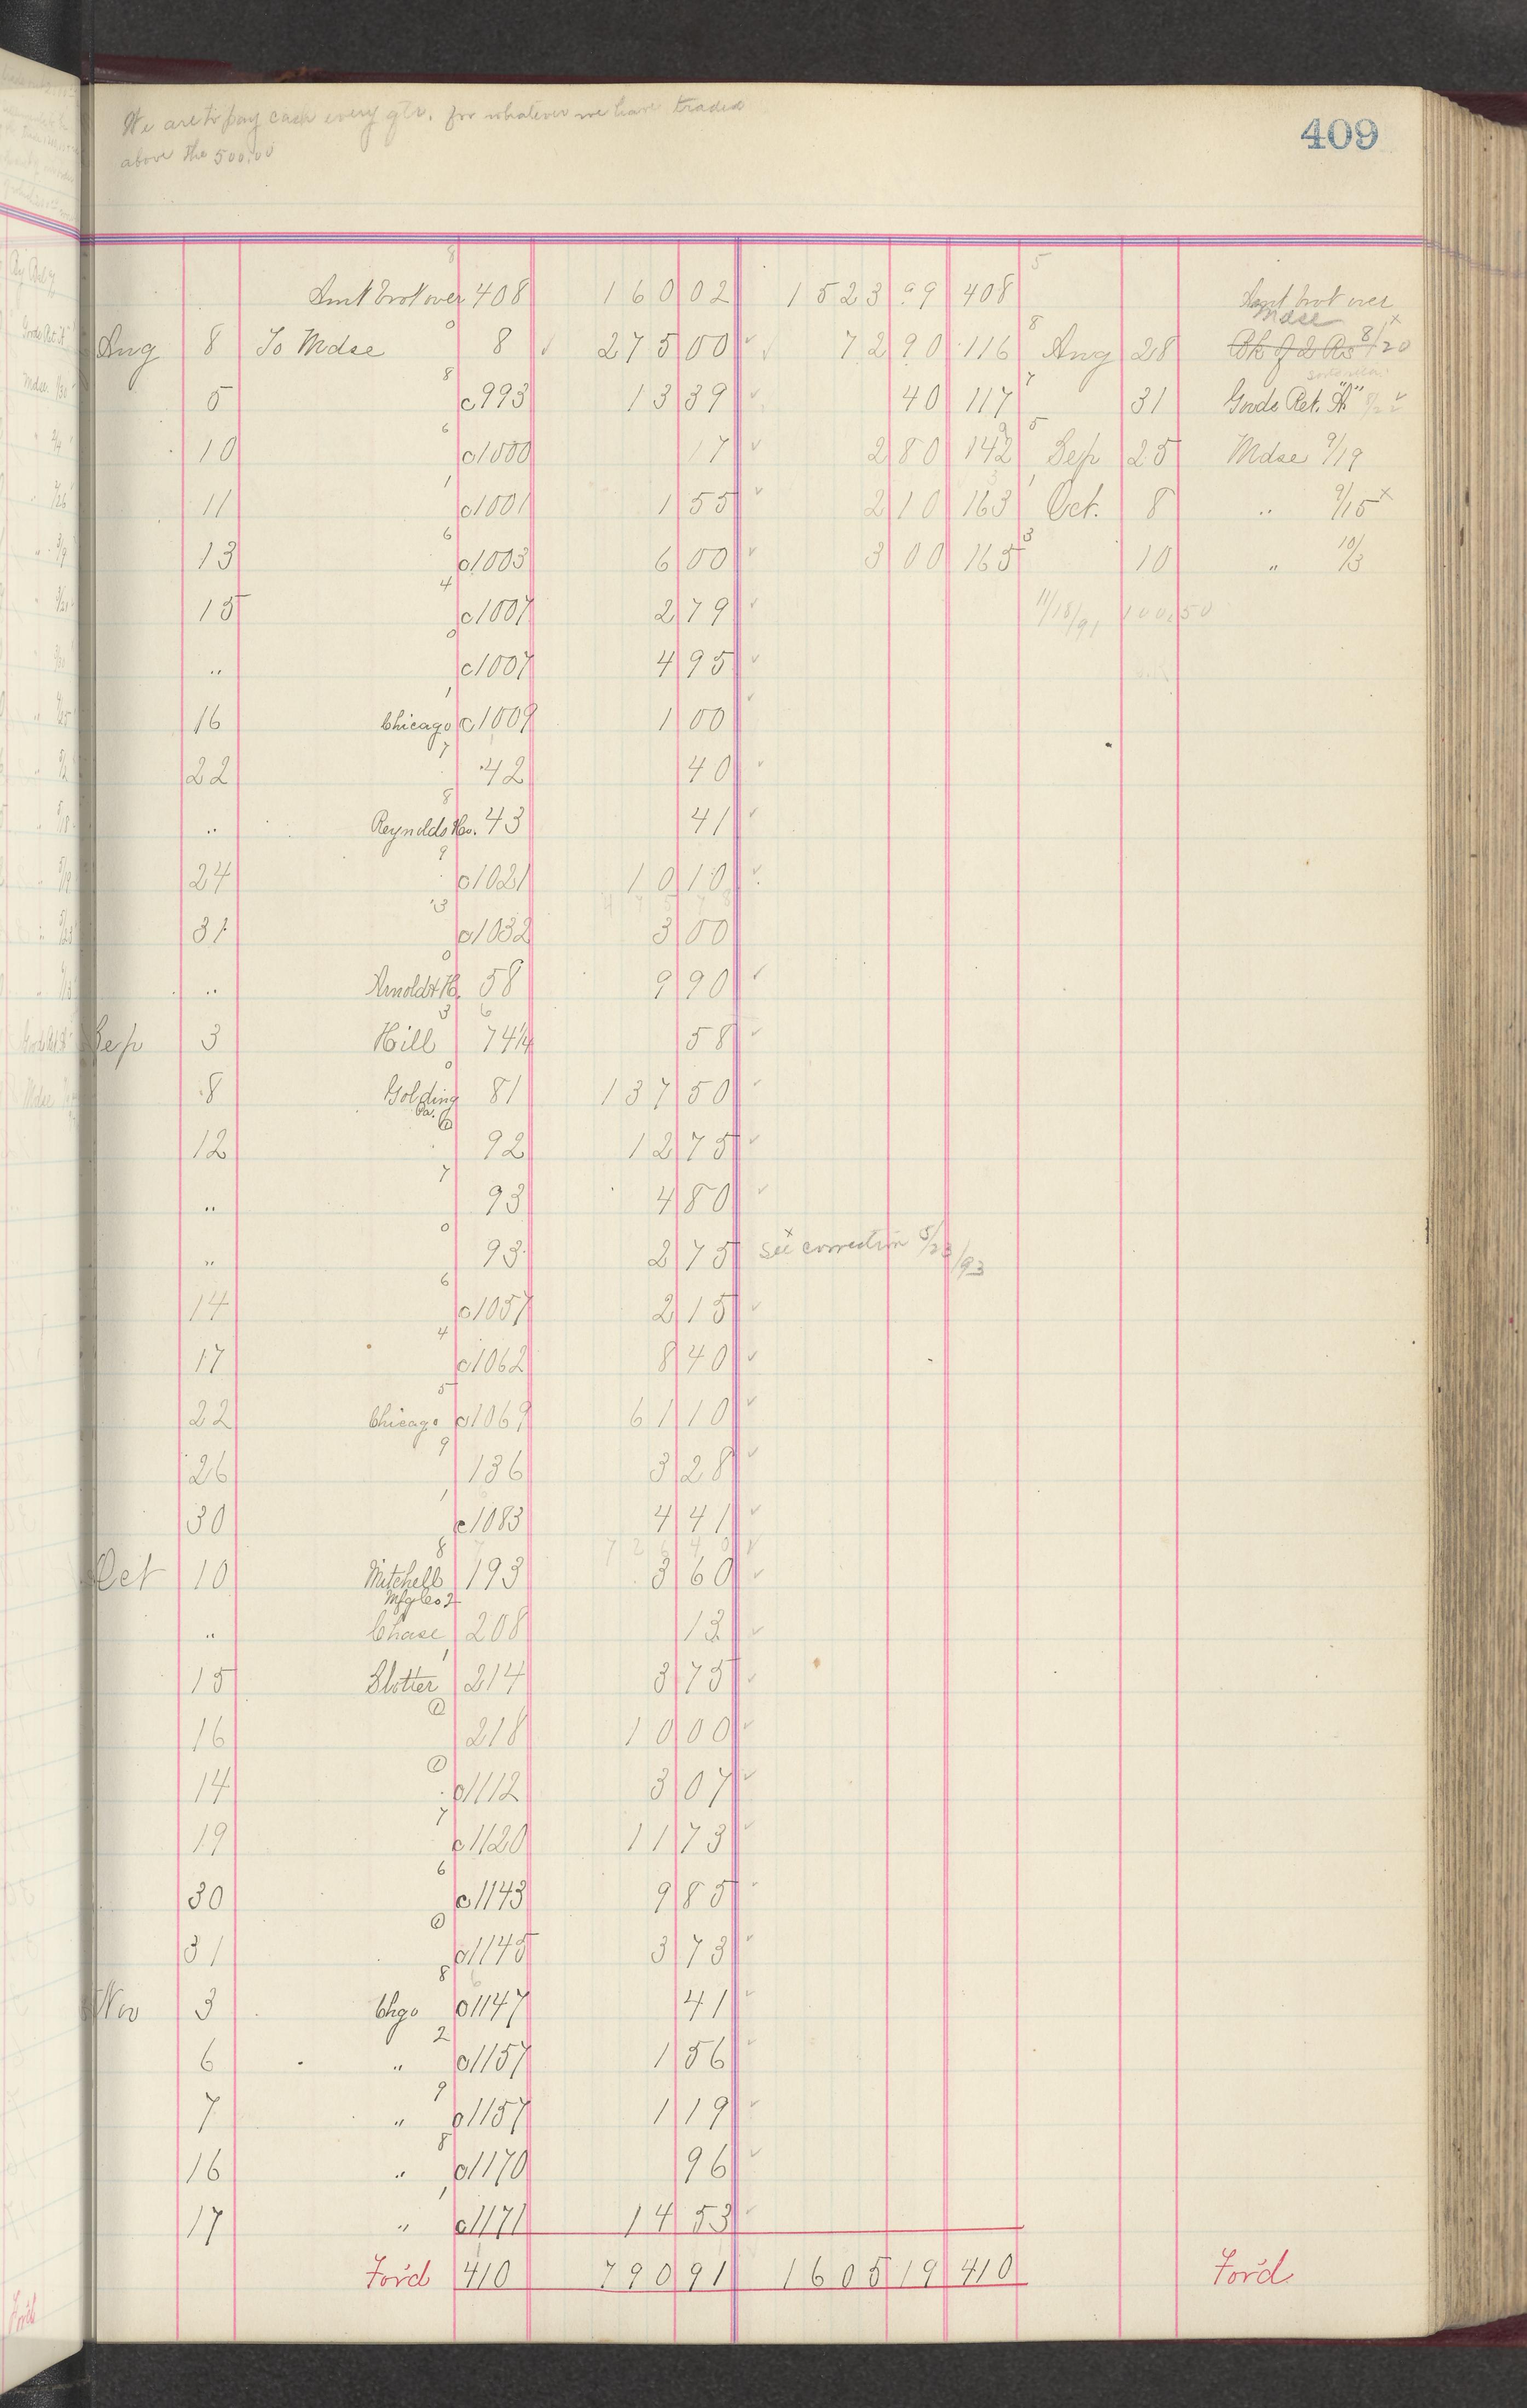 We are to pay cash every qtr. for whatever we have traded
above the 500.00
409
Amt brot over 408 160 02 1523 99 408 Amt brot over
Mdse
Aug 8 To Mdse 8 275 00 72 90 116 Aug 28 8/20
5 c993 13 39 40 117 31 Goods Ret. "A"
10 c1000 17 2 80 142 Sep 25 Mdse 9/19
11 c1001 1 55 2 10 163 Oct. 8 " 9/15 x
13 c1003 6 00 3 00 165 10 " 10/3
15 c1007 2 79 11/18/91 100.50
" c1007 4 95
16 Chicago c1009 1 00
22 42 40
" Reynolds Hov. 43 41
24 c1021 10 10
31 c1032 3 00
" Arnoldt H. 58 9 90
Sep 3 Hill 74 1/4 58
8 Golding 81 137 50
12 92 12 75
" 93 4 80
" 93 2 75 see correction 5/23/93
14 c1057 2 15
17 c1062 8 40
22 Chicago c1069 61 10
26 136 3 28
30 c1083 4 41
726 40
Oct 10 Mitchell 193 3 60
Mfg Co
" Chase 208 13
15 Slotter 214 3 75
16 218 10 00
14 c1112 3 07
19 c1120 11 73
30 c1143 9 85
31 c1145 3 73
Nov 3 Chgo c1147 41
6 " c1157 1 56
7 " c1157 1 19
16 " c1170 96
17 " c1171 14 53
For'd 410 790 91 1605 19 410 For'd